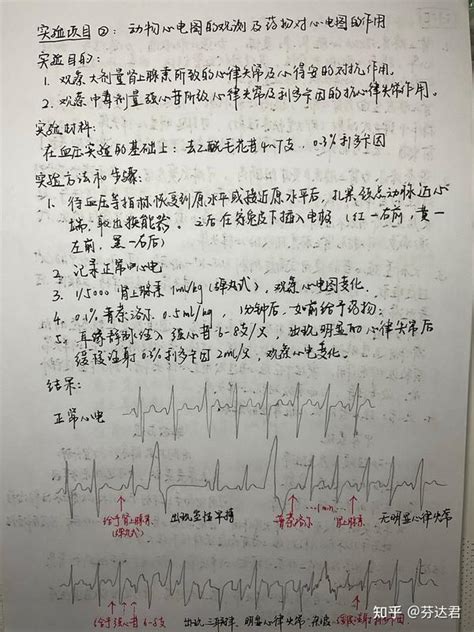 实验项目②: 动物心电图的观测及药物对心电图的作用
实验目的:
1. 观察大剂量肾上腺素所致的心律失常及心得安的对抗作用。
2. 观察中毒剂量强心苷所致心律失常及利多卡因的抗心律失常作用。
实验材料:
在血压实验的基础上: 去乙酰毛花苷 4~7支, 0.3%利多卡因
实验方法和步骤:
1. 待血压等指标恢复到原水平或接近原水平后, 扎紧颈总动脉近心
端, 取出换能器。之后在家兔皮下插入电极 (红—右前, 黄—
左前, 黑—右后)
2. 记录正常心电
3. 1/5000 肾上腺素 1ml/kg (弹丸式), 观察心电图变化.
4. 0.1% 普萘洛尔 0.5ml/kg, 1分钟后, 如前给予药物.
5. 耳缘静脉注入 强心苷 6-8支/只, 出现明显的心律失常后
缓慢注射 0.3%利多卡因 2ml/只, 观察心电变化。
结果:
正常心电
给予肾上腺素 出现室性早搏 普萘洛尔 1min 肾上腺素 无明显心律失常
(弹丸式)
给予强心苷 6-8支 出现 明显心律失常
知乎 @芬达君